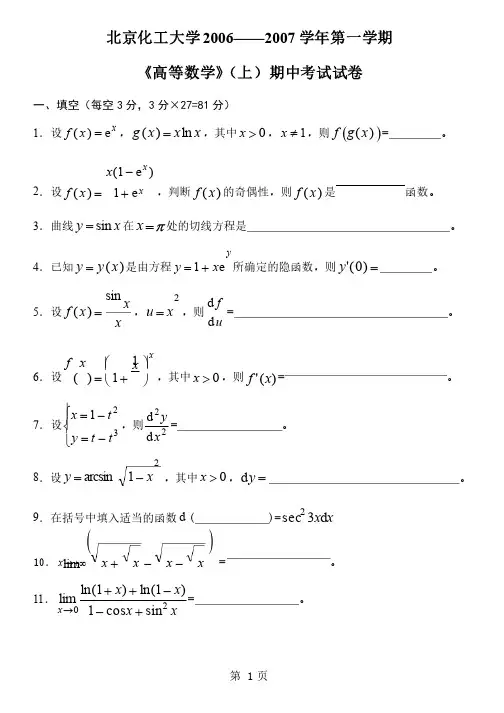 北京化工大学2006——2007学年第一学期
《高等数学》（上）期中考试试卷
一、填空（每空3分，3分×27=81分）
1．设 f(x) = e^x，g(x) = x ln x，其中 x > 0，x ≠ 1，则 f(g(x)) = ________。
2．设 f(x) = x(1 − e^x) / 1 + e^x，判断 f(x) 的奇偶性，则 f(x) 是________函数。
3．曲线 y = sin x 在 x = π 处的切线方程是________。
4．已知 y = y(x) 是由方程 y = 1 + xe^y 所确定的隐函数，则 y'(0) = ________。
5．设 f(x) = sin x / x，u = x^2，则 df/du = ________。
6．设 f(x) = (1 + 1/x)^x，其中 x > 0，则 f'(x) = ________。
7．设 { x = 1 − t^2, y = t − t^3，则 d^2y/dx^2 = ________。
8．设 y = arcsin √(1 − x^2)，其中 x > 0，dy = ________。
9．在括号中填入适当的函数 d (________) = sec^2 3xdx
10．lim x→∞ (√(x + √x) − √(x − √x)) = ________。
11．lim x→0 ln(1 + x) + ln(1 − x) / 1 − cos x + sin^2 x = ________。
第 1 页